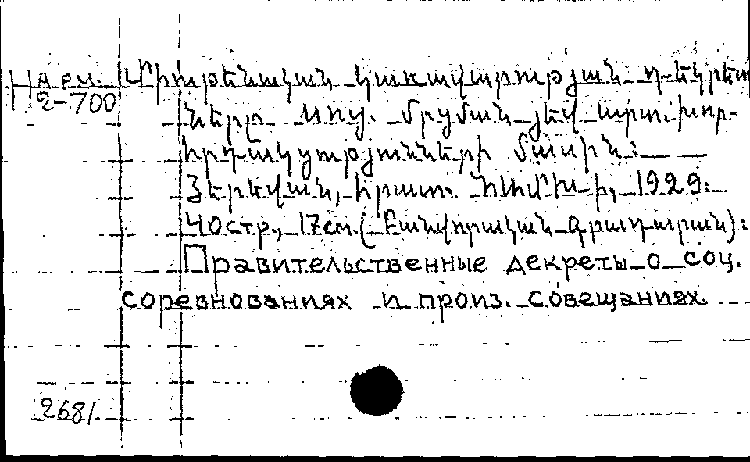 На рм. Միութենական կառավարության դեկրետ
2-700
ները սոց. մրցման յեվ արտ. խոր-
հրդակցությունների մասին:
Յերեվան, հրատ. 1929:
40стр, 17см. (Բանվորական գրադարան):
Правительственные декреты о соц.
соревнованиях и произ. совещаниях.
2681